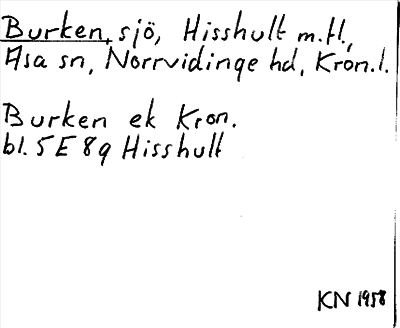 Burken, sjö, Hisshult m.fl.,
Asa sn, Norrvidinge hd, Kron.l.
Burken ek Kron.
bl. 5 E 8 g Hisshult
KN 1958